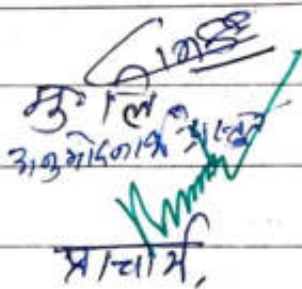 मु० लि०
अनुमोदनार्थ प्रस्तुत
प्राचार्य,